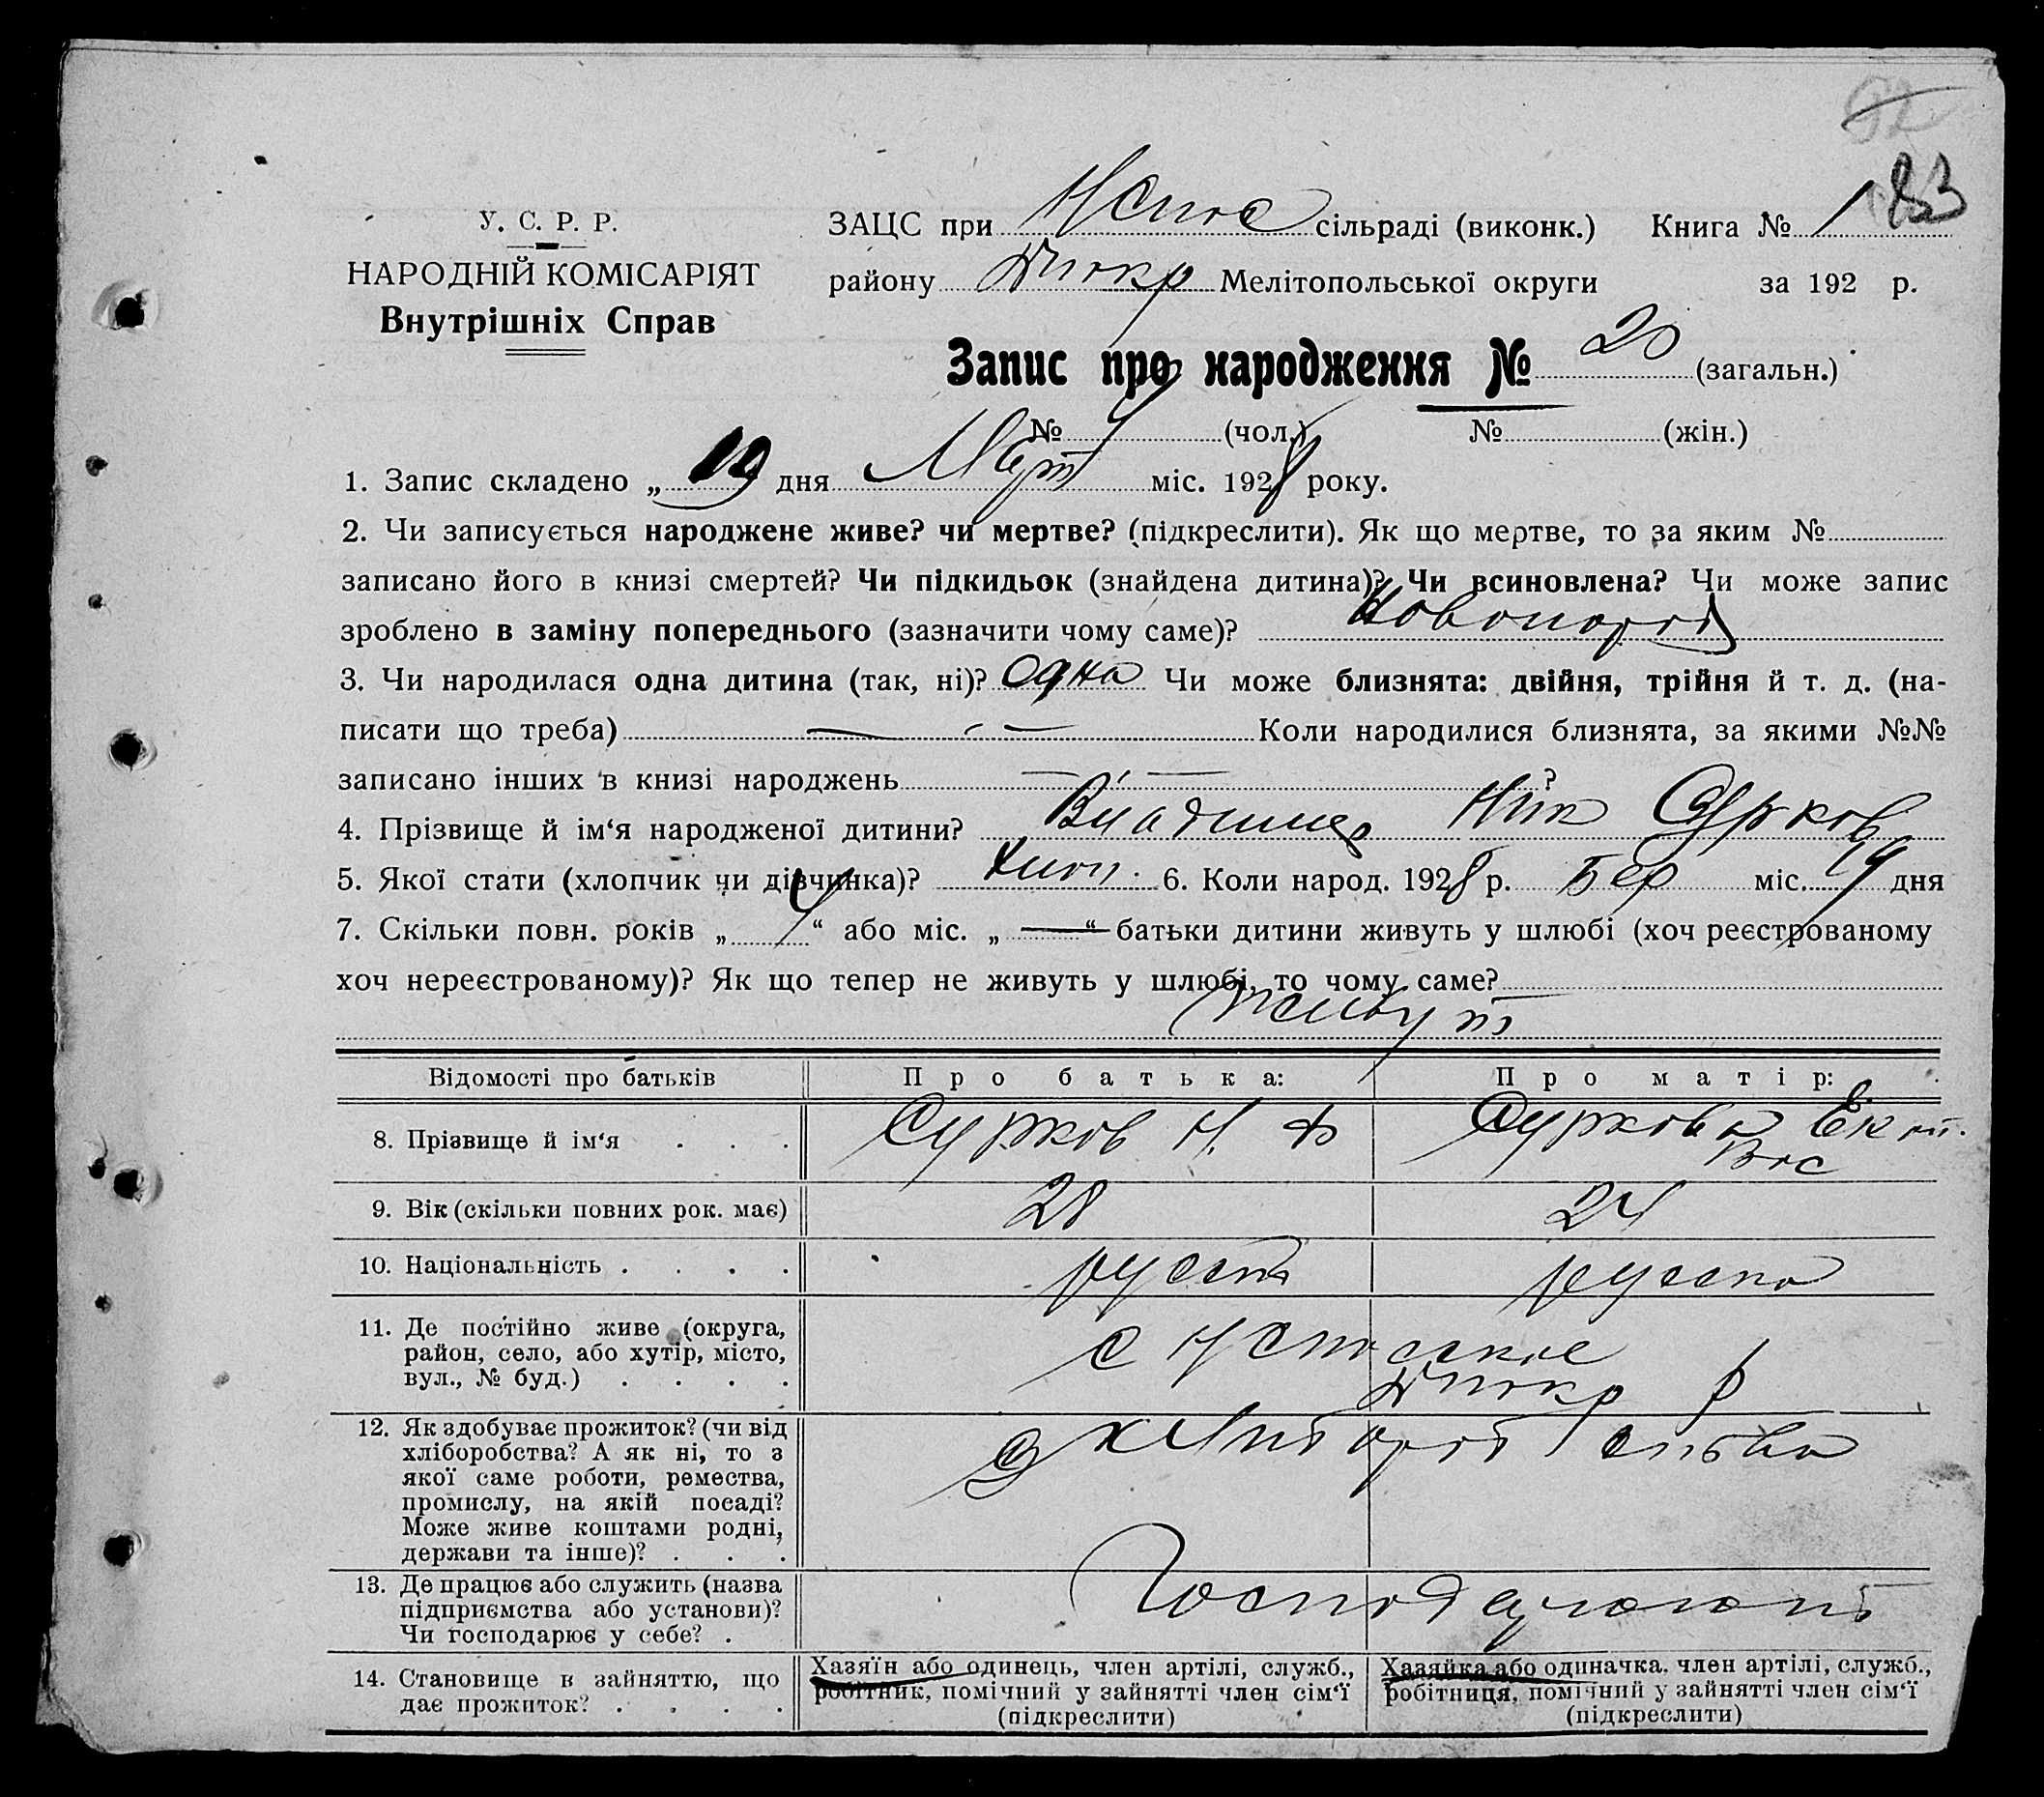 83
У. С. Р. Р.
НАРОДНІЙ КОМІСАРІЯТ
Внутрішніх Справ
ЗАЦС при сільраді (виконк.) Книга № 1
району Мелітопольської округи за 192 р.
Запис про народження № 20 (загальн.)
№ (чол.) № (жін.)
1. Запис складено „19 дня Март міс. 1928 року.
2. Чи записується народжене живе? чи мертве? (підкреслити). Як що мертве, то за яким №
записано його в книзі смертей? Чи підкидьок (знайдена дитина)? Чи всиновлена? Чи може запис
зроблено в заміну попереднього (зазначити чому саме)?
3. Чи народилася одна дитина (так, ні)? Одна Чи може близнята: двійня, трійня й т. д. (на-
писати що треба) Коли народилися близнята, за якими №№
записано інших в книзі народжень ?
4. Прізвище й ім‘я народженої дитини? Владимир Ник Сурков
5. Якої стати (хлопчик чи дівчинка)? Хлоп. 6. Коли народ. 1928 р. Бер міс. 19 дня
7. Скільки повн. років „ 4 “ або міс. „ — “ батьки дитини живуть у шлюбі (хоч реєстрованому
хоч нереєстрованому)? Як що тепер не живуть у шлюбі, то чому саме?
живут
Відомості про батьків Про батька: Про матір:
8. Прізвище й ім‘я . . . Сурков Н. Суркова Екат. Вас
9. Вік (скільки повних рок. має) 28 24
10. Національність . . . . русск русска
11. Де постійно живе (округа,
район, село, або хутір, місто,
вул., № буд.) . . . .
12. Як здобуває прожиток? (чи від
хліборобства? А як ні, то з
якої саме роботи, ремества,
промислу, на якій посаді?
Може живе коштами родні,
держави та інше)? . . .
13. Де працює або служить (назва
підприємства або установи)?
Чи господарює у себе? .
Господарюють
14. Становище в зайняттю, що
дає прожиток? . . . .
Хазяїн або одинець, член артілі, служб.,
робітник, помічний у зайнятті член сім‘ї
(підкреслити)
Хазяйка або одиначка, член артілі, служб.,
робітниця, помічний у зайнятті член сім‘ї
(підкреслити)